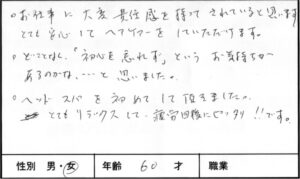 ○お仕事に大変責任感を持ってされていると思います
とても安心してヘアケアーをしていただけます。
○どことなく、「初心を忘れず」というお気持ちが
あるのかな、…と思いました。
○ヘッドスパを初めてして頂きました。
とてもリラックスして、疲労回復にピッタリ!!です。
性別 男・女 年齢 60 才 職業